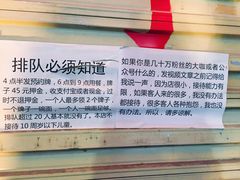 排队必须知道
4点半发预约牌，6点到9点用餐，牌
子45元押金，收支付宝或者现金，过
时不退押金，一个人最多领2个牌子，
一个牌子一碗面，一个人一碗面足够，
排队超过20人基本就没有了。本店不
接待10周岁以下儿童。
如果你是几十万粉丝的大咖或者公
众号什么的，发视频文章之前记得给
我说一声，因为店很小，接待能力有
限，如果客人来的很多，我也没有办法
都接待，很多客人各种抱怨，我也没
有办法。所以，请多谅解。